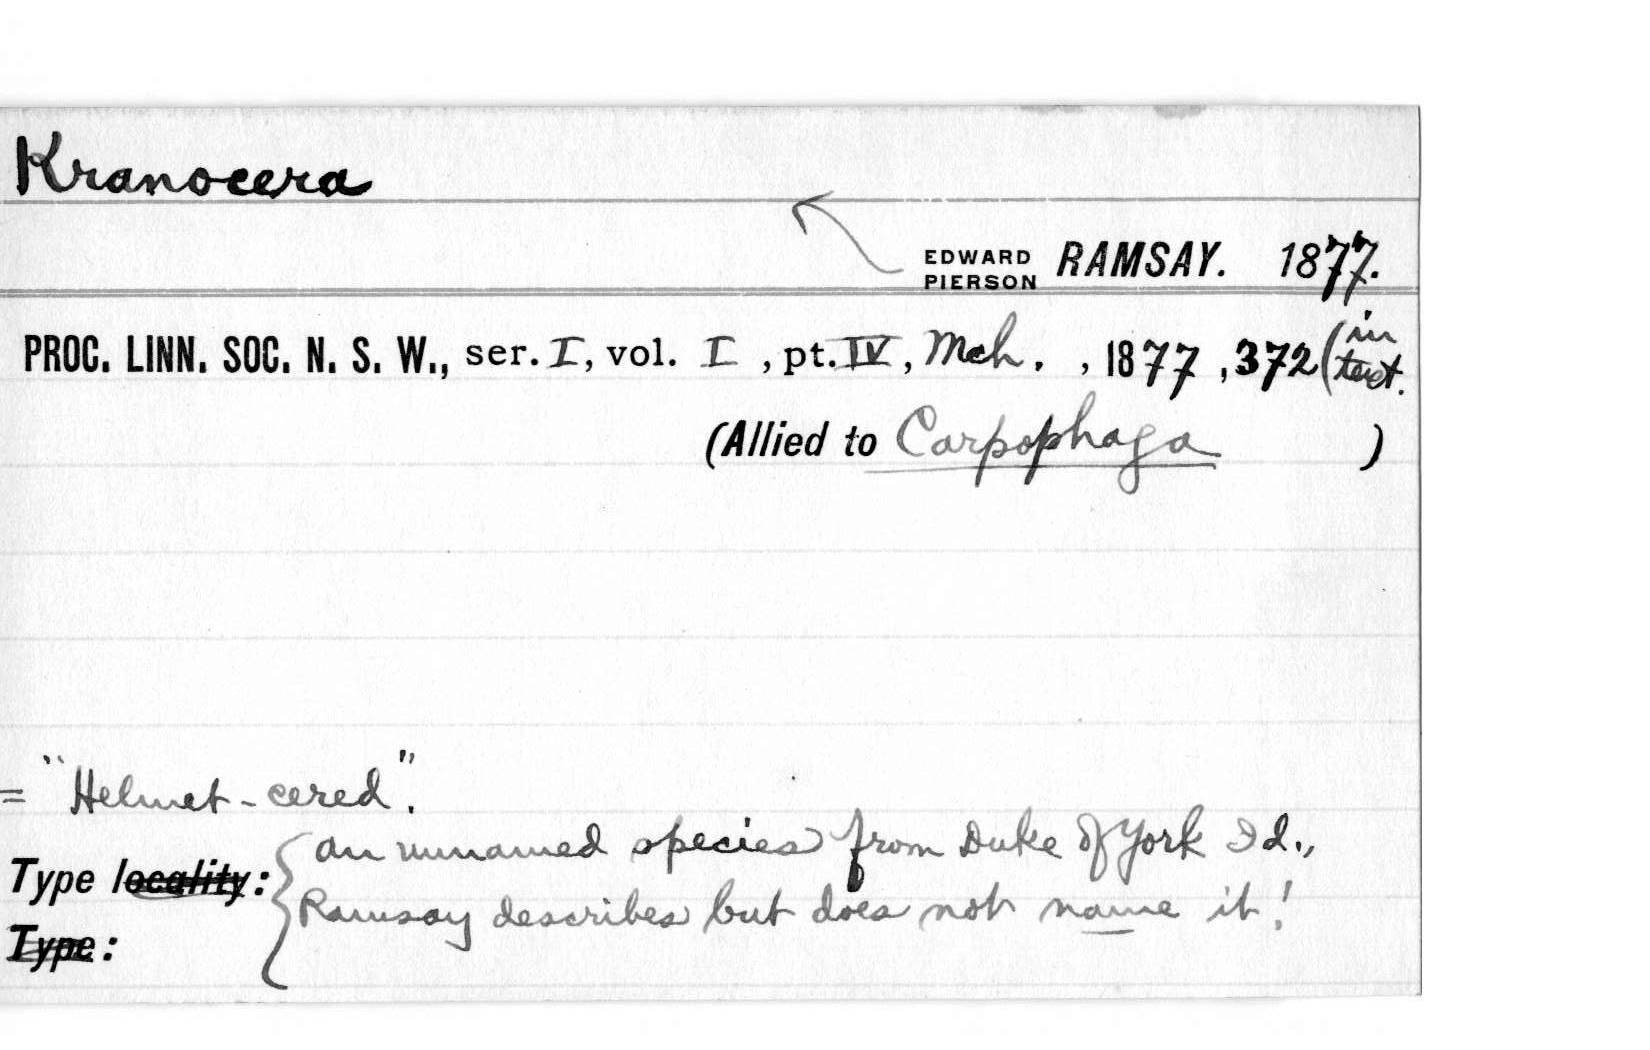 Kranocera
EDWARD PIERSON RAMSAY. 1877.
PROC. LINN. SOC. N. S. W., ser. I, vol. I , pt. IV, Mch. , 1877 , 372 (in text.
(Allied to Carpophaga )
= "Helmet-cered".
Type locality: { an unnamed species from Duke of York Id.,
Ramsay describes but does not name it!
Type: